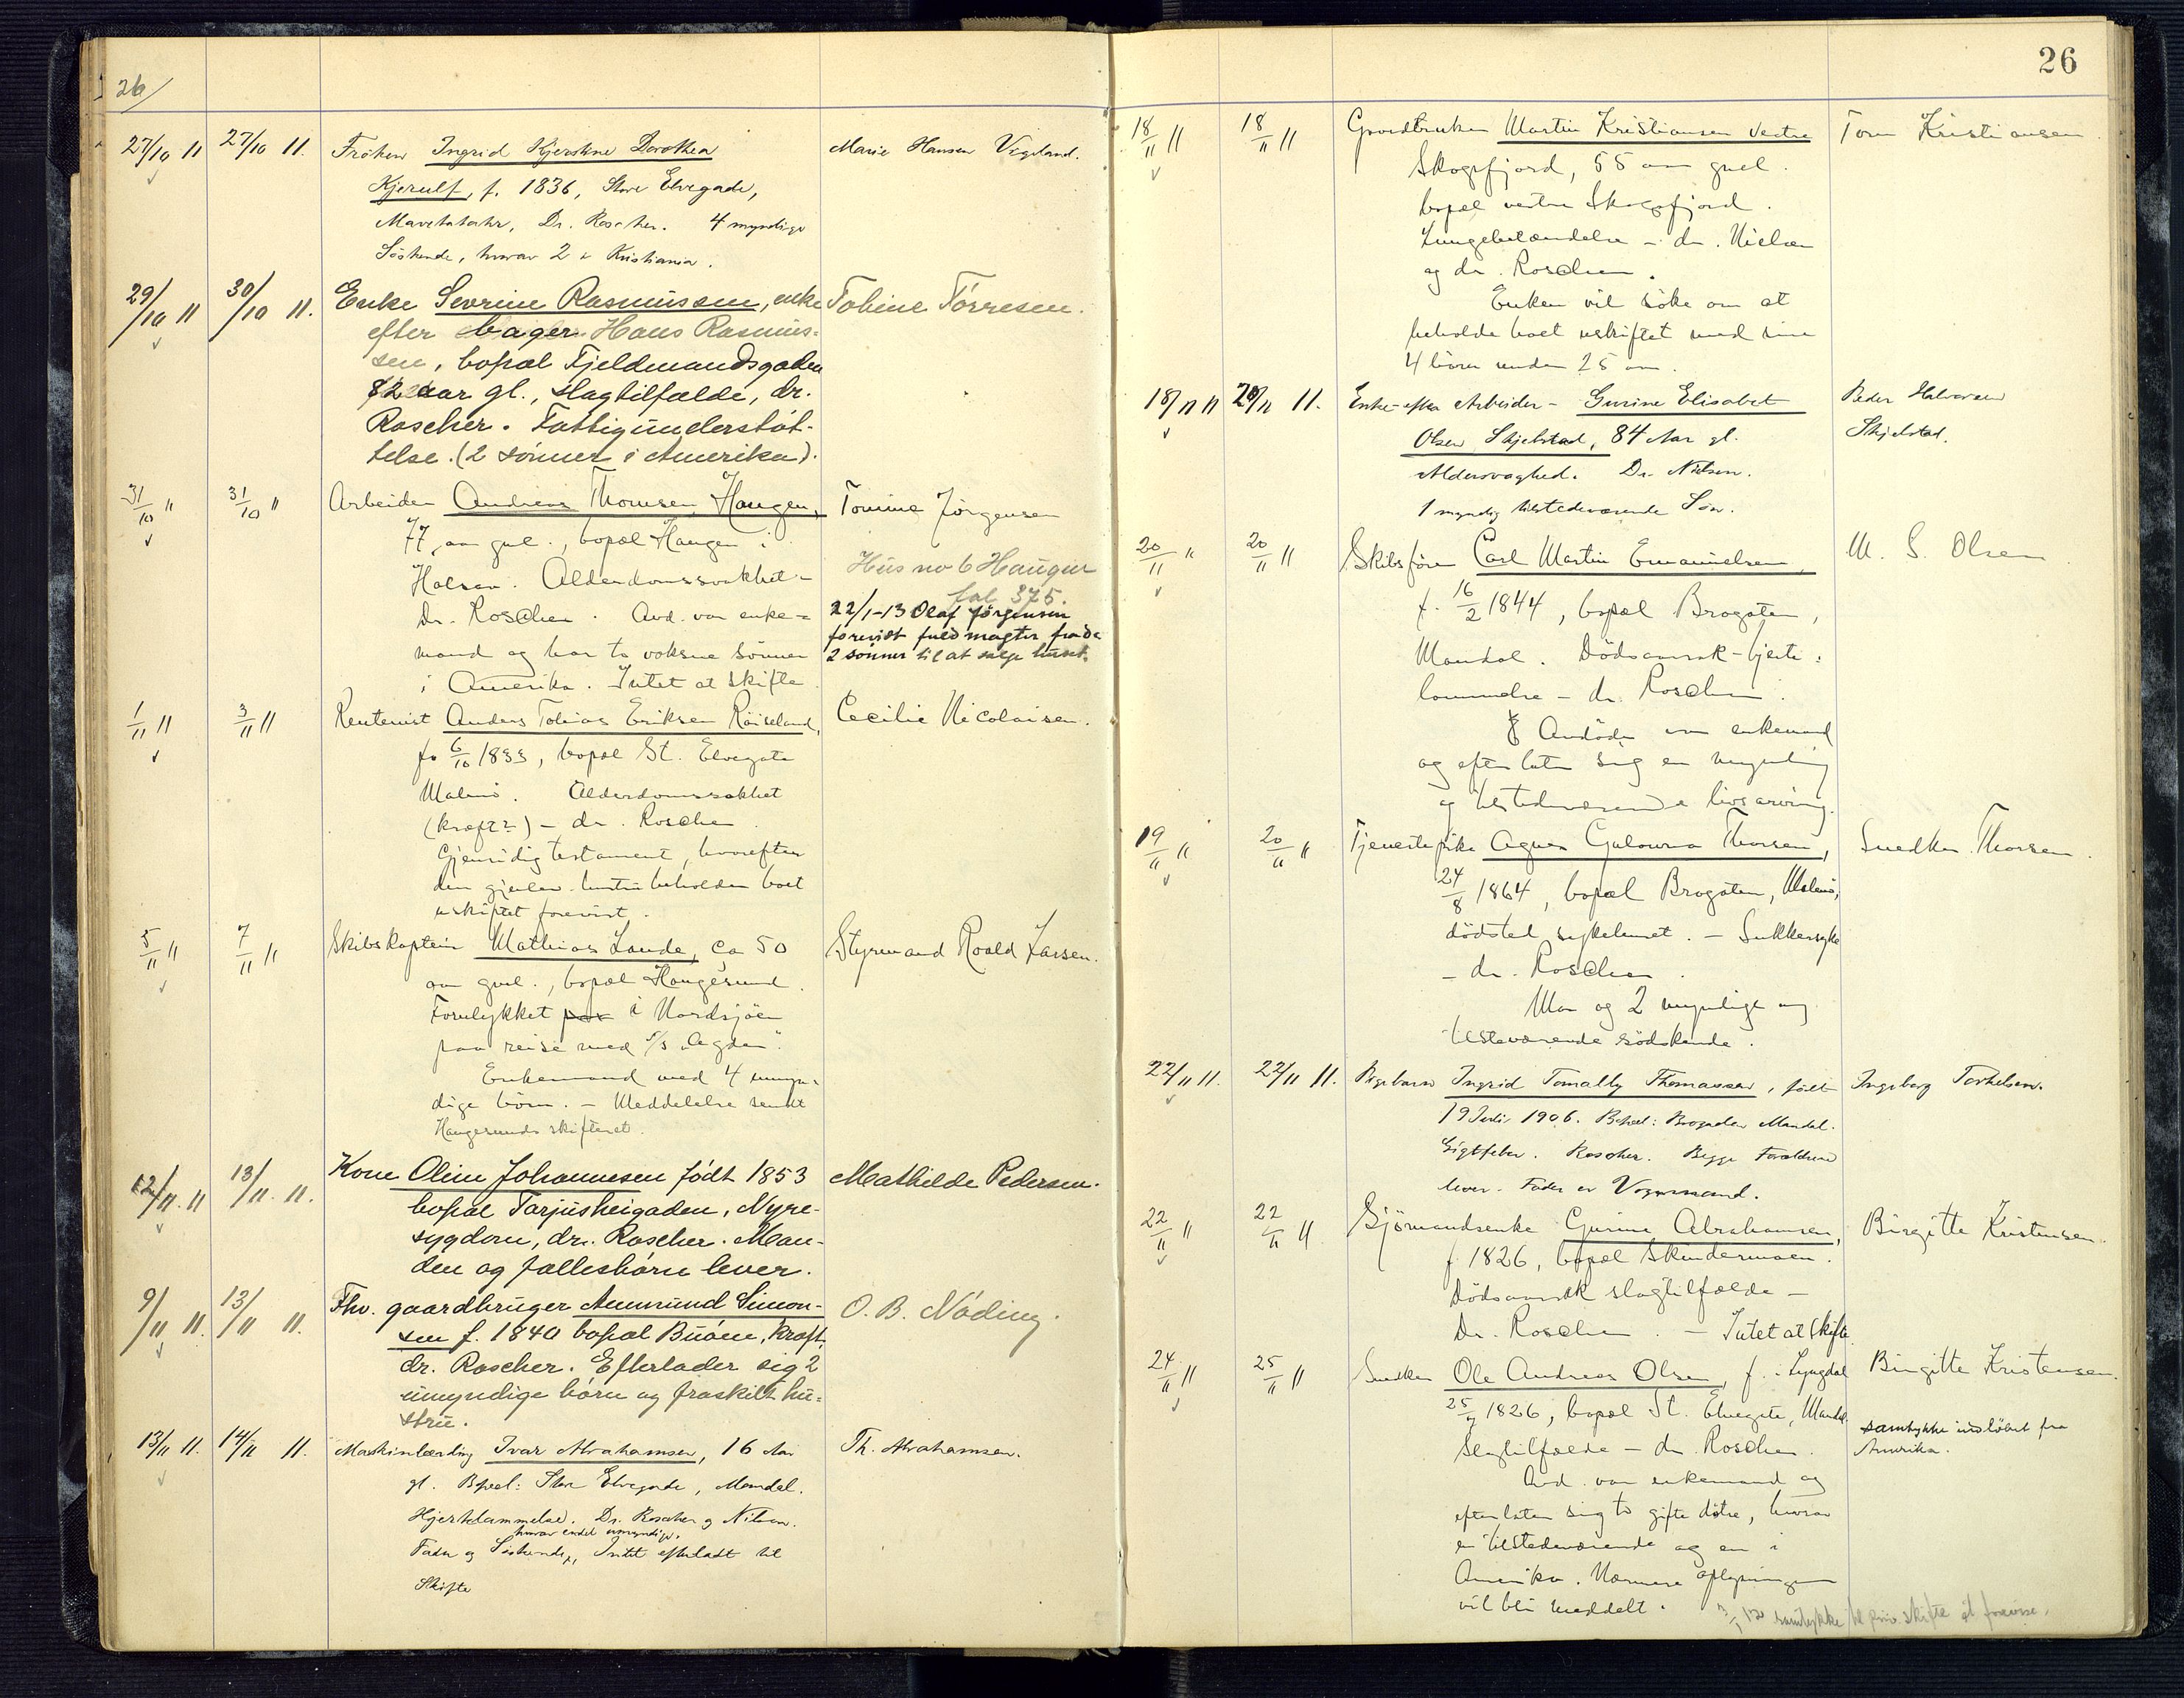 26/
27/10 11 27/10 11. Frøken Ingrid Kjerstine Dorothea Marie Hansen Vigeland.
Kjerulf, f. 1836, Store Elvegade,
Dr. Roscher. 4 myndige
Söskende, hvorav 2 i Kristiania.
29/10 11 30/10 11. Enke Sevrine Rasmussen, enke Tobine Törresen.
efter bager Hans Rasmus-
sen, bopæl Fjeldmandsgaden
82 aar gl., slagtilfælde, dr.
Roscher. Fattigunderstöt-
telse. (2 sönner i Amerika).
31/10 " 31/10 " Arbeider Andreas Thomsen Haugen, Tomine Jörgensen
77 aar gml., bopæl Haugen i
Halsaa. Alderdomssvakhet - Hus no 6 Haugen
fol 375.
Dr. Roscher. Avd. var enke- 22/1-13 Olaf Jörgensen
forevist fuldmagter fra de
mand og har to voksne sönner 2 sönner til at sælge huset.
i Amerika. Intet at skifte
1/11 11 3/11 11 Rentenist Anders Tobias Eriksen Röiseland, Cecilie Nicolaisen.
f. 6/10 1833, bopæl St. Elvegate
Malmö. Alderdomssvakhet
(kræft?) - dr. Roscher.
Gjensidig testament, hvorefter
den gjenlev. hustru beholder boet
uskiftet forevist.
5/11 " 7/11 " Skibskaptein Mathias Lande, ca 50 Styrmand Roald Larsen.
aar gml., bopæl Haugesund.
Forulykket paa i Nordsjöen
paa reise med S/S "Agdar".
Enkemand med 4 umyn-
dige börn. - Meddelelse sendt
Haugesunds skifteret.
12/11. 11 13/11. 11. Kone Oline Johannesen födt 1853 Mathilde Pedersen.
bopæl Tarjusheigaden, Nyre-
sygdom, dr. Roscher. Man-
den og fællesbörn lever.
9/11 11. 13/11 11. Fhv. gaardbruger Aanmund Simon- O. B. Nöding.
sen f. 1840 bopæl Buöen, kræft,
dr. Roscher. Efterlader sig 2
umyndige börn og fraskilt hu-
stru.
13/11 11. 14/11 11. Maskinlærling Ivar Abrahamsen, 16 Aar Th. Abrahamsen.
gl. Bopæl: Store Elvegade, Mandal.
Hjertelammelse. Dr. Roscher og Nilsen.
hvorav endel umyndige.
Fader og Söskende, Intet efterladt til
Skifte
26
18/11 11 18/11 11 Gaardbruker Martin Kristiansen vestre Tom Kristiansen
Skogsfjord, 55 aar gml.
bopæl vestre Skogsfjord.
Lungebetændelse - dr. Nielsen
og dr. Roscher.
Enken vil söke om at
beholde boet uskiftet med sine
4 börn under 25 aar.
18/11 11 20/11 11. Enke efter Arbeider - Gurine Elisabet Peder Halvorsen
Olsen Skjelstad, 84 Aar gl. Skjelstad.
Aldersvaghed. Dr. Nilsen.
1 myndig tilstedeværende Sön.
20/11 " 20/11 11 Skibsförer Carl Martin Emanuelsen, M. S. Olsen
f. 16/2 1844, bopæl Brogaten,
Mandal. Dödsaarsak - hjerte-
lammelse - dr. Roscher.
Avdöde var enkemand
og efterlater sig en myndig
og tilstedeværende livsarving.
19/11 " 20/11 " Tjenestepike Agnes Gulowna Thorsen, Snedker Thorsen.
24/8 1864, bopæl Brogaten, Malmö,
dödsted sykehuset. - Sukkersyke
- dr. Roscher.
Mor og 2 myndige og
tilsteværende södskende.
22/11 11. 22/11 11. Pigebarn Ingrid Tomally Thomassen, født Ingeborg Torkelsen.
19 Juli 1906. Bopæl: Brogaden Mandal.
Gigtfeber. Roscher. Begge Forældrene
lever. Fader er Vognmand.
22/11 " 22/11 11 Sjömandsenke Gurine Abrahamsen, Birgitte Kristensen.
f. 1826, bopæl Skindermoen.
Dödsaarsak slagtilfælde -
Dr. Roscher. - Intet at skifte
24/11 11 25/11 11 Snedker Ole Andreas Olsen, f. i Lyngdal Birgitte Kristensen.
25/7 1826, bopæl St. Elvegate, Mandal samtykke indlöbet fra
Slagtilfælde - dr. Roscher. Amerika.
Avd. var enkemand og
efterlater sig to gifte dötre, hvorav
en tilstedeværende og en i
Amerika. Nærmere oplysninger
vil bli meddelt. samtykke til priv. skifte